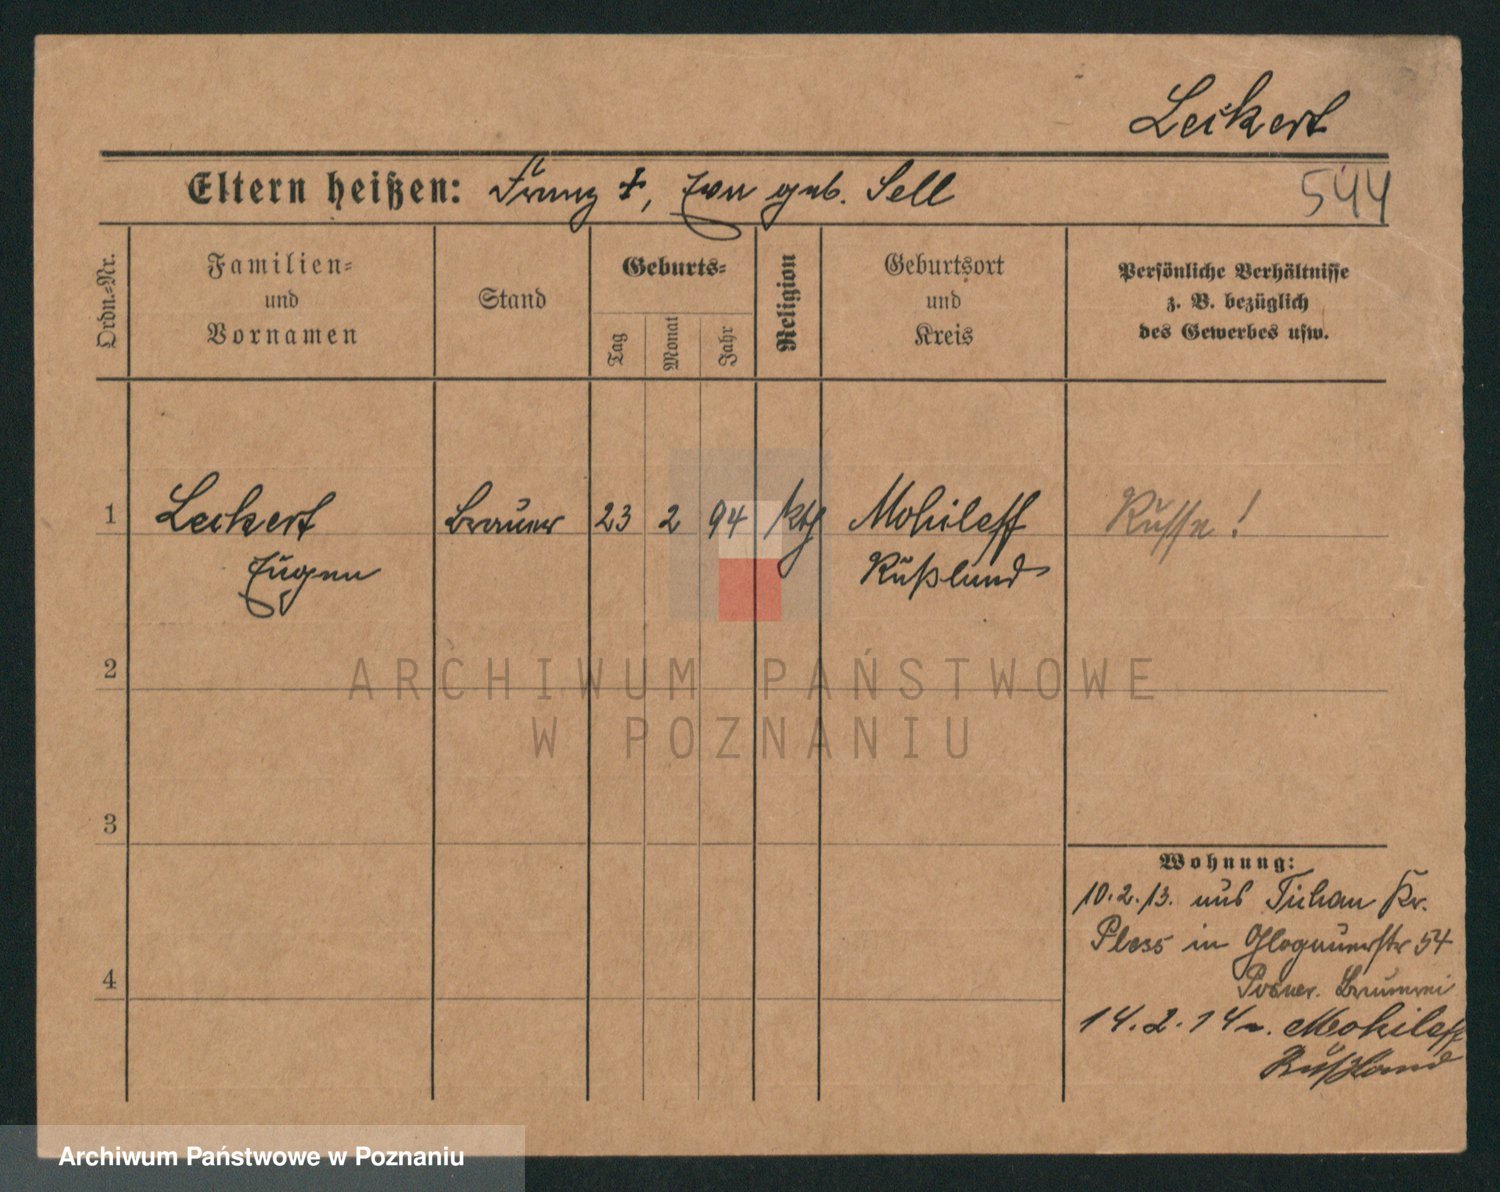 Leikert
Eltern heißen: Franz †, Ewa geb. Sell
544
Ordn.-Nr.
Familien-
und
Vornamen
Stand
Geburts-
Tag
Monat
Jahr
Religion
Geburtsort
und
Kreis
Persönliche Verhältnisse
z. B. bezüglich
des Gewerbes usw.
1 Leikert Brauer 23 2 94 kth Mohileff Russe!
Eugen Rußland
2
ARCHIWUM PAŃSTWOWE
W POZNANIU
3
Wohnung:
10.2.13. aus Tichau Kr.
Pless in Glogauerstr 54
4
Posner. Brauerei
14.2.14 n. Mohileff
Rußland
Archiwum Państwowe w Poznaniu